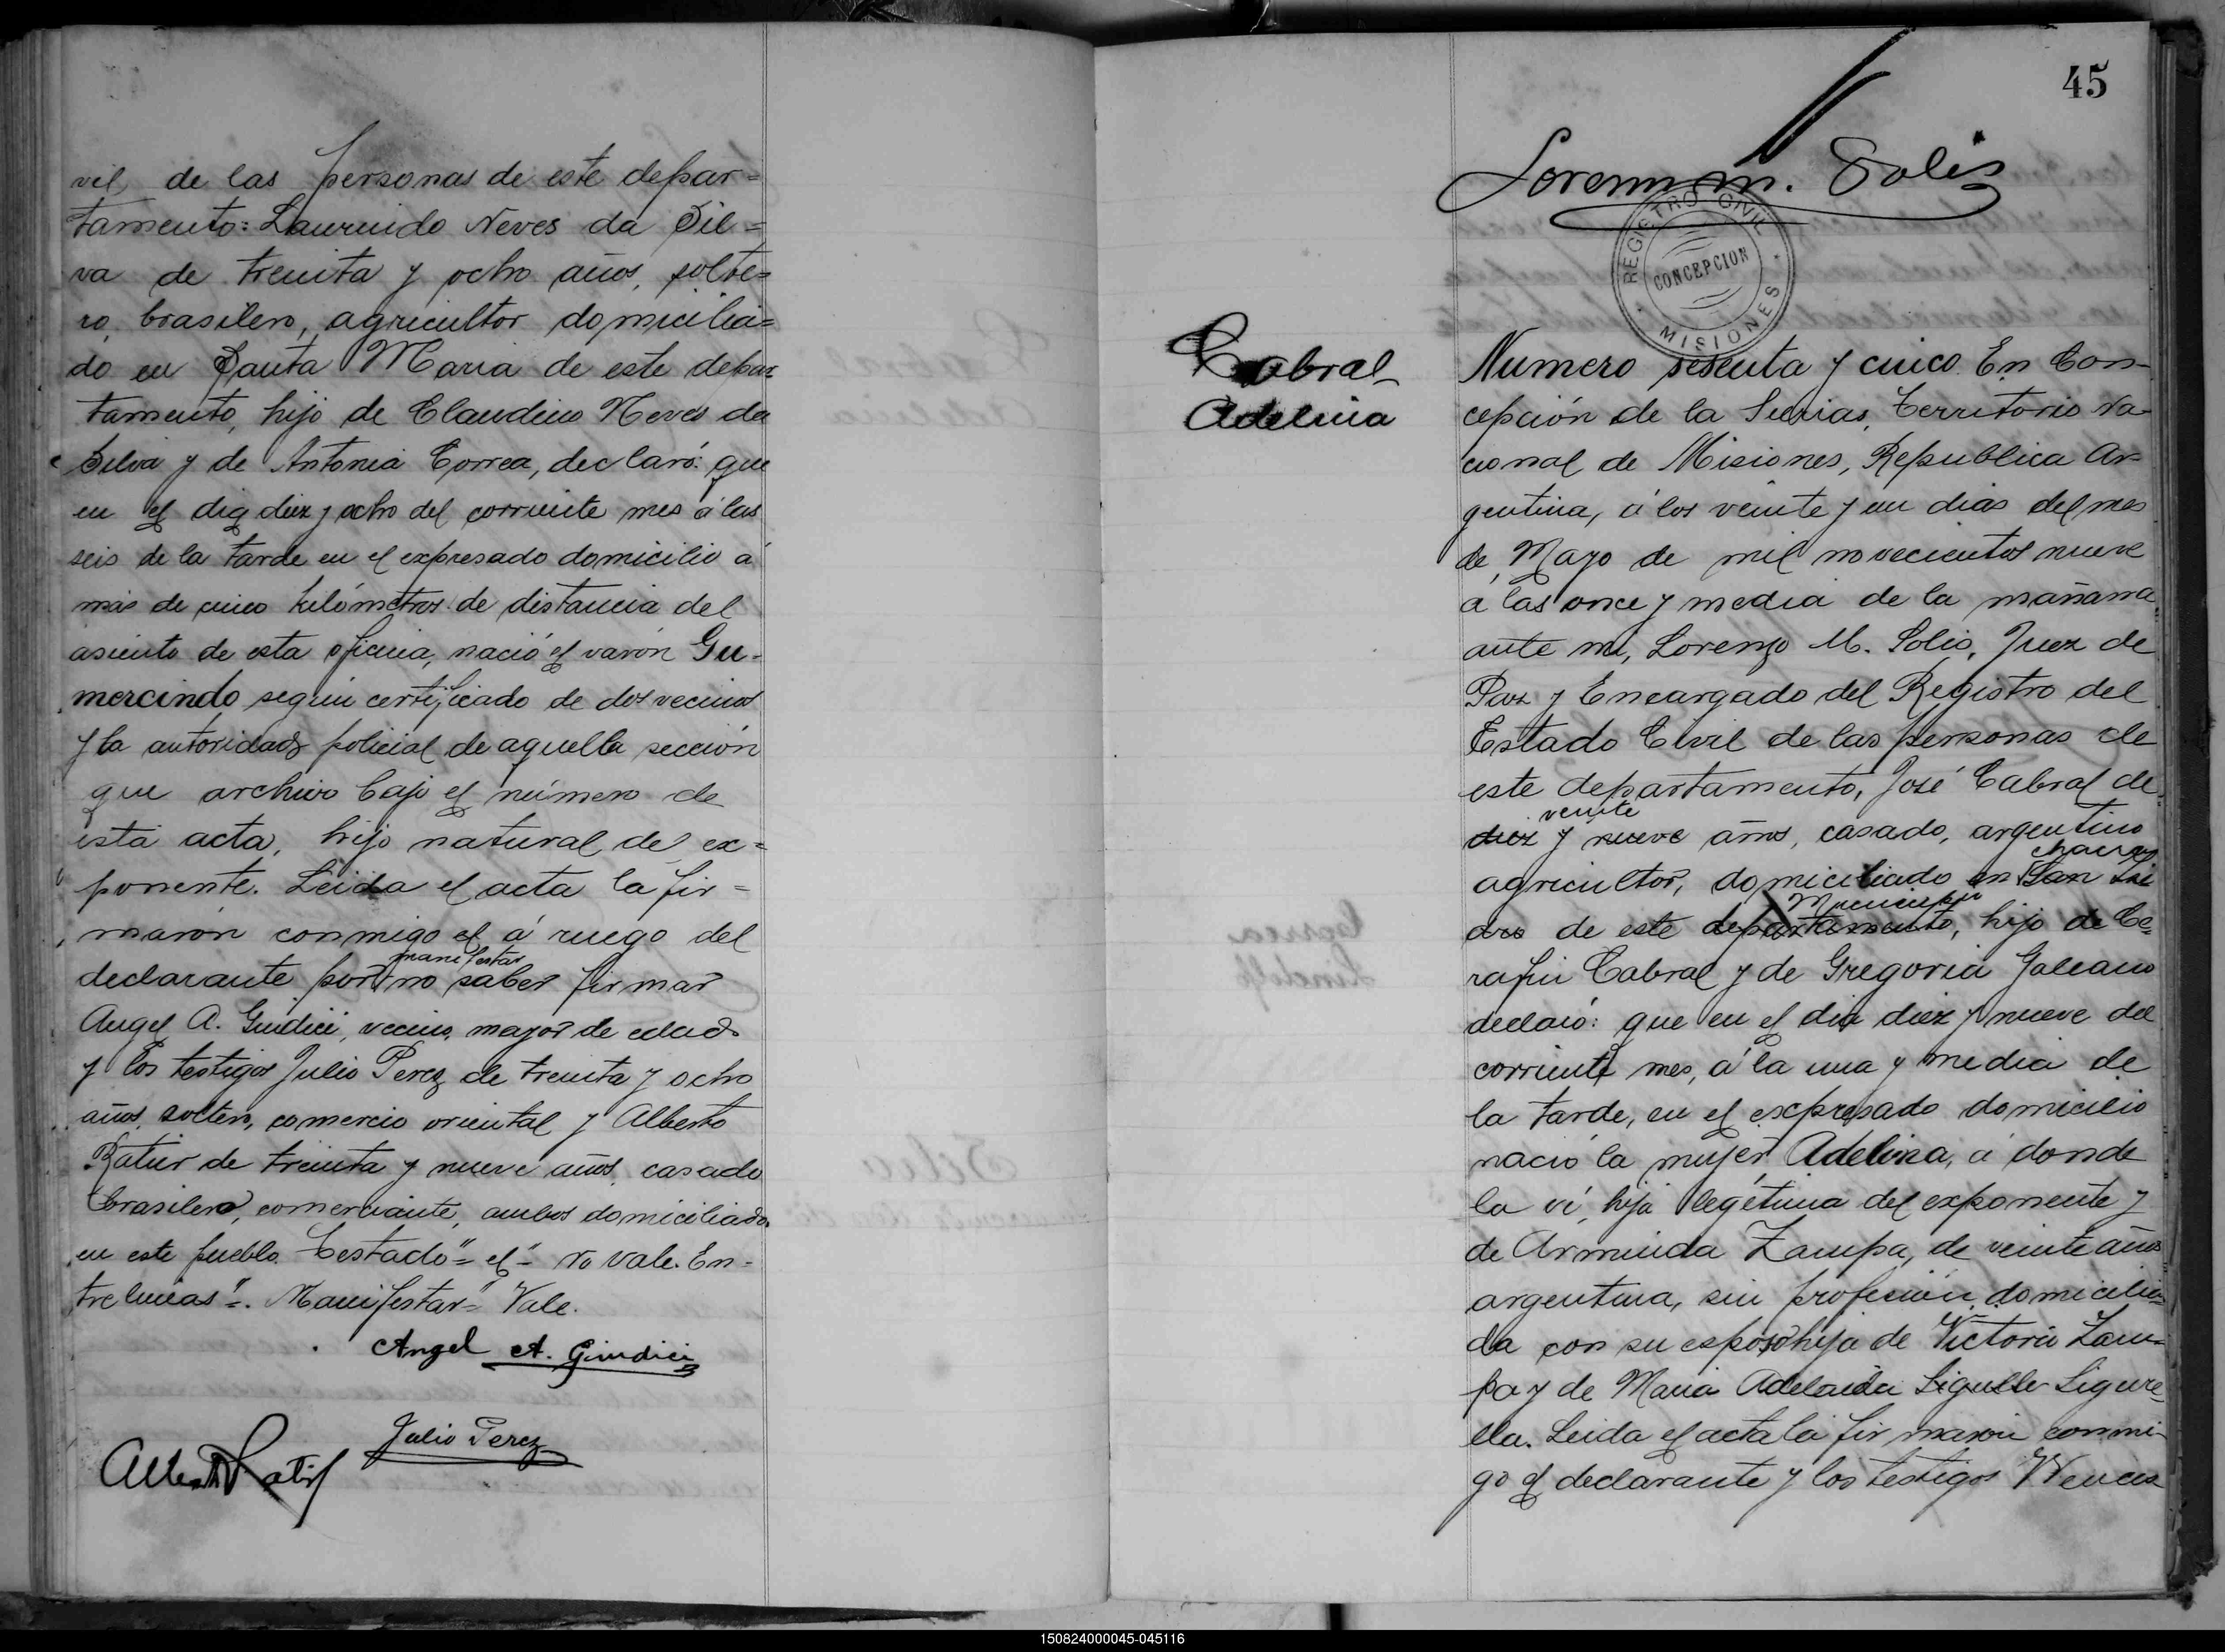 vil de las personas de este depar=
tamento: Laurindo Neves da Sil=
va de treinta y ocho años, solte=
ro, brasilero, agricultor domicilia=
do en Santa Maria de este depar=
tamento, hijo de Claudino Neves da
Silva y de Antonia Correa, declaró: que
en el dia diez y ocho del corriente mes á las
seis de la tarde en el expresado domicilio á
más de cinco kilómetros de distancia del
asiento de esta oficina, nació el varón Gu-
mercindo según certificado de dos vecinos
y la autoridad policial de aquella sección
que archivo bajo el número de
esta acta, hijo natural del ex=
ponente. Leida el acta la fir=
maron conmigo el á ruego del
manifestar
declarante por no saber firmar
Angel A. Giudici, vecino, mayor de edad
y los testigos Julio Perez de treinta y ocho
años, soltero, comercio oriental y Alberto
Ratier de treinta y nueve años, casado
brasilero, comerciante, ambos domiciliados
en este pueblo. Testado "= el "= No vale. En=
trelineas "=. Manifestar "= Vale.
Angel A. Giudici
Julio Perez
Alberto Ratier
45
Lorenzo M. Solis
REGISTRO CIVIL
CONCEPCION
MISIONES
Cabral
Adelina
Numero sesenta y cinco. En Con-
cepción de la Sierras, Territorio Na-
cional de Misiones, Republica Ar-
gentina, á los veinte y un dias del mes
de Mayo de mil novecientos nueve
a las once y media de la mañana
ante mi, Lorenzo M. Solis, Juez de
Paz y Encargado del Registro del
Estado Civil de las personas de
este departamento, José Cabral de
veinte
diez y nueve años, casado, argentino
chacra
agricultor, domiciliado en San Isi
Municipio
dro de este departamento, hijo de Ce=
rafin Cabral y de Gregoria Galeano
declaró: que en el dia diez y nueve del
corriente mes, á la una y media de
la tarde, en el expresado domicilio
nació la mujer Adelina, á donde
la ví, hija legítima del exponente y
de Arminda Zampa, de veinte años
argentina, sin profesión, domicilia=
da con su esposo hija de Victorio Zam=
pa y de Maria Adelaida Sigulle Sigure=
lla. Leida el acta la firmaron conmi-
go el declarante y los testigos Wences
150824000045-045116